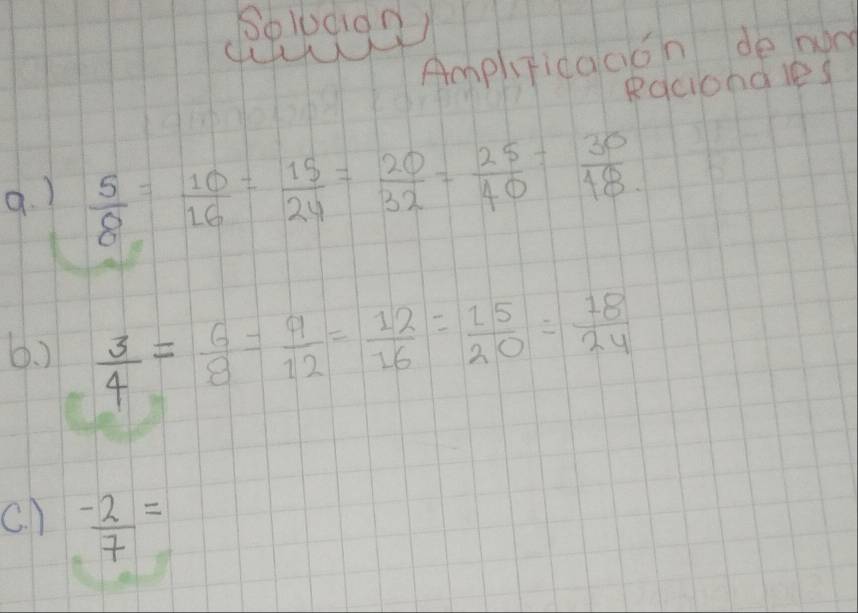 Solucion
Amplificación de num
Racionales
a.) 5/8 = 10/16 = 15/24 = 20/32 = 25/40 = 30/48.
b.) 3/4 = 6/8 = 9/12 = 12/16 = 15/20 = 18/24
c.) -2/7 =